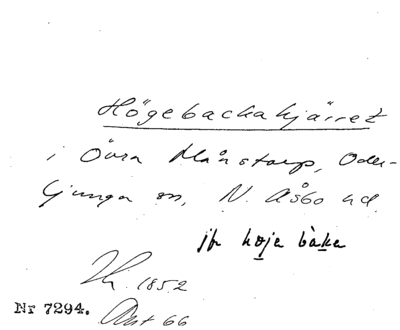 Högebackakjärret
i Övra Månstorp, Oder-
ljunga sn, N. Åsbo hd.
jfr høja bàka
1852
Nr 7294.
66